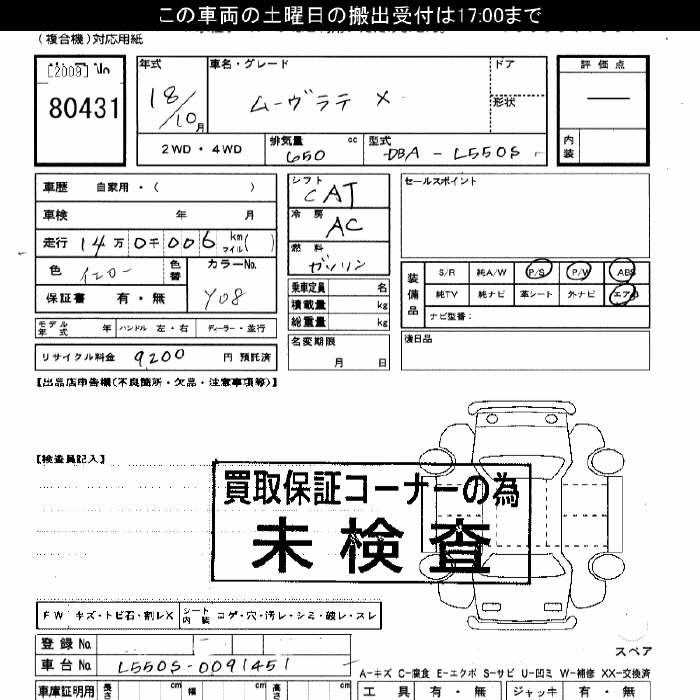 この車両の土曜日の搬出受付は17:00まで
(複合機)対応用紙
[2009] No
80431
年式 車名・グレード ドア 評価点
18/10月 ムーヴラテ X 形状
2WD・4WD 排気量 650 cc 型式 DBA-L550S 内装
車歴 自家用・( ) シフト CAT セールスポイント
車検 年 月 冷房 AC
走行 14万0千006 km マイル( )
燃料 ガソリン
色 イエロー 色替 カラーNo. Y08
装備品 S/R 純A/W P/S P/W ABS
保証書 有・無 乗車定員 名 純TV 純ナビ 革シート 外ナビ エアB
積載量 kg ナビ型番:
モデル年式 年 ハンドル 左・右 ディーラー・並行 総重量 kg
リサイクル料金 9200 円 預託済 名変期限 月 日 後日品
【出品店申告欄(不良箇所・欠品・注意事項等)】
【検査員記入】
買取保証コーナーの為
未検査
FW キズ・トビ石・割レX シート内装 コゲ・穴・汚レ・シミ・破レ・スレ
登録 No.
車台 No. L550S-0091451
スペア
A-キズ C-腐食 E-エクボ S-サビ U-凹ミ W-補修 XX-交換済
車庫証明用 長さ cm 幅 cm 高さ cm 工具 有・無 ジャッキ 有・無